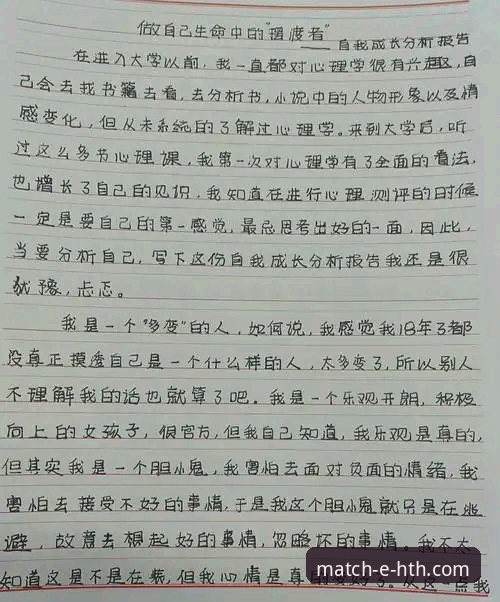 做自己生命中的"摆渡者"
——自我成长分析报告
在进入大学以前,我一直都对心理学很有兴趣,自
己会去找书籍去看,去分析书,小说中的人物形象以及情
感变化,但从未系统的了解过心理学。来到大学后,听
过这么多节心理课,我第一次对心理学有了全面的看法,
也增长了自己的见识,我知道在进行心理测评的时候
一定是要自己的第一感觉,最忌思考出好的一面,因此,
当要分析自己,写下这份自我成长分析报告我还是很
犹豫,忐忑。
我是一个"多变"的人,如何说,我感觉我18年了都
没真正摸透自己是一个什么样的人,太多变了,所以别人
不理解我的话也就算了吧。我是一个乐观开朗,积极
向上的女孩子,很官方,但我自己知道,我乐观是真的,
但其实我是一个胆小鬼,我害怕去面对负面的情绪,我
害怕去接受不好的事情,于是我这个胆小鬼就只是在逃
避,故意去想起好的事情,忽略坏的事情。我不太
知道这是不是在装,但我心情是真的变好了。从这一点我
match-e-hth.com